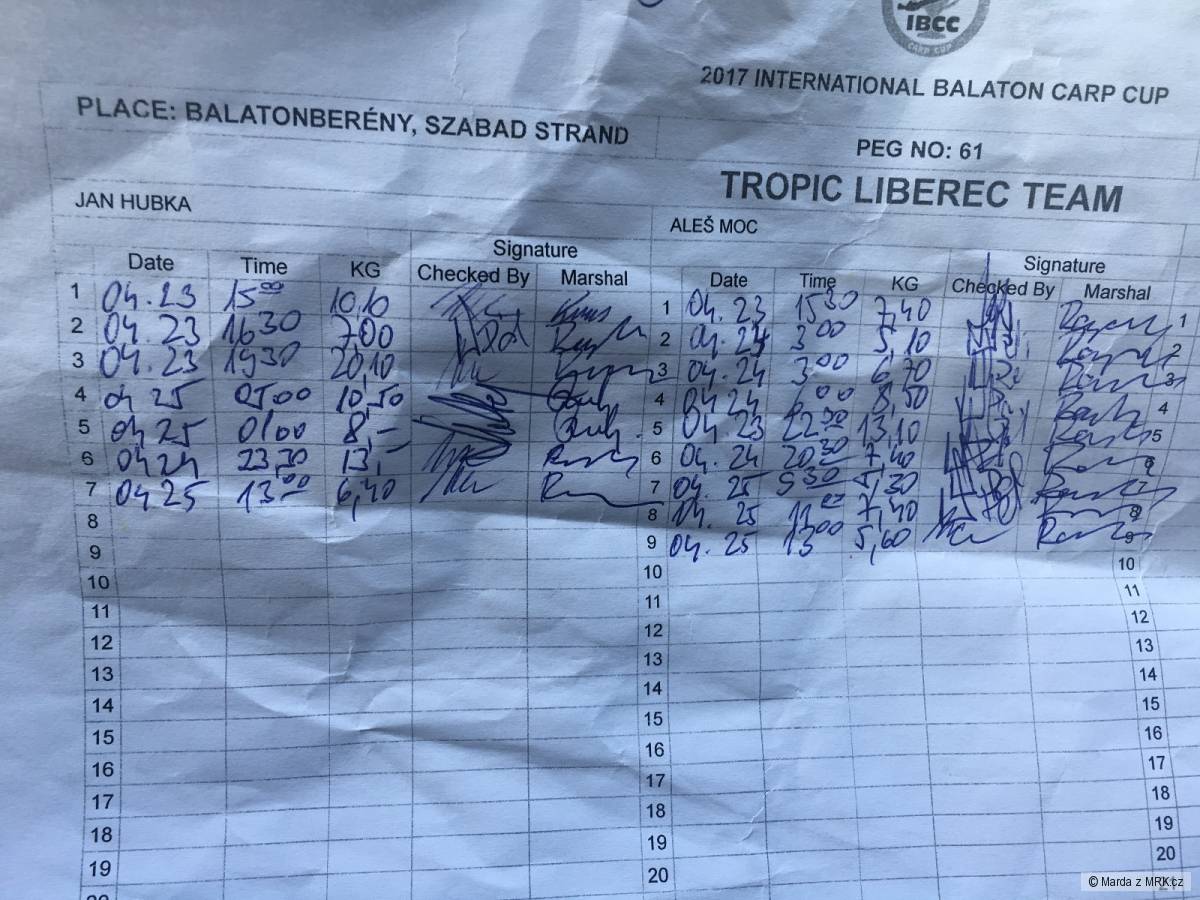 IBCC
CARP CUP
2017 INTERNATIONAL BALATON CARP CUP
PLACE: BALATONBERÉNY, SZABAD STRAND
PEG NO: 61
TROPIC LIBEREC TEAM
JAN HUBKA
ALEŠ MOC
Date Time KG Signature Checked By Marshal
1 04.23 15 00 10,10
2 04.23 16 30 7,00
3 04.23 19 30 20,10
4 04 25 05 00 10,50
5 04 25 01 00 8,-
6 04 24 23,30 13,-
7 04 25 13 00 6,40
8
9
10
11
12
13
14
15
16
17
18
19
20
Date Time KG Signature Checked By Marshal
1 04.23 15 30 7,40 1
2 04.24 3 00 5,10 2
3 04.24 3 00 6,70 3
4 04 24 00 8,50 4
5 04.23 22 30 13,10 5
6 04.24 20 30 7,40 6
7 04.25 5 30 5,30 7
8 04.25 11 00 7,40 8
9 04.25 13 00 5,60 9
10 10
11 11
12 12
13 13
14 14
15 15
16 16
17 17
18 18
19 19
20 20
21
© Marda z MRK.cz